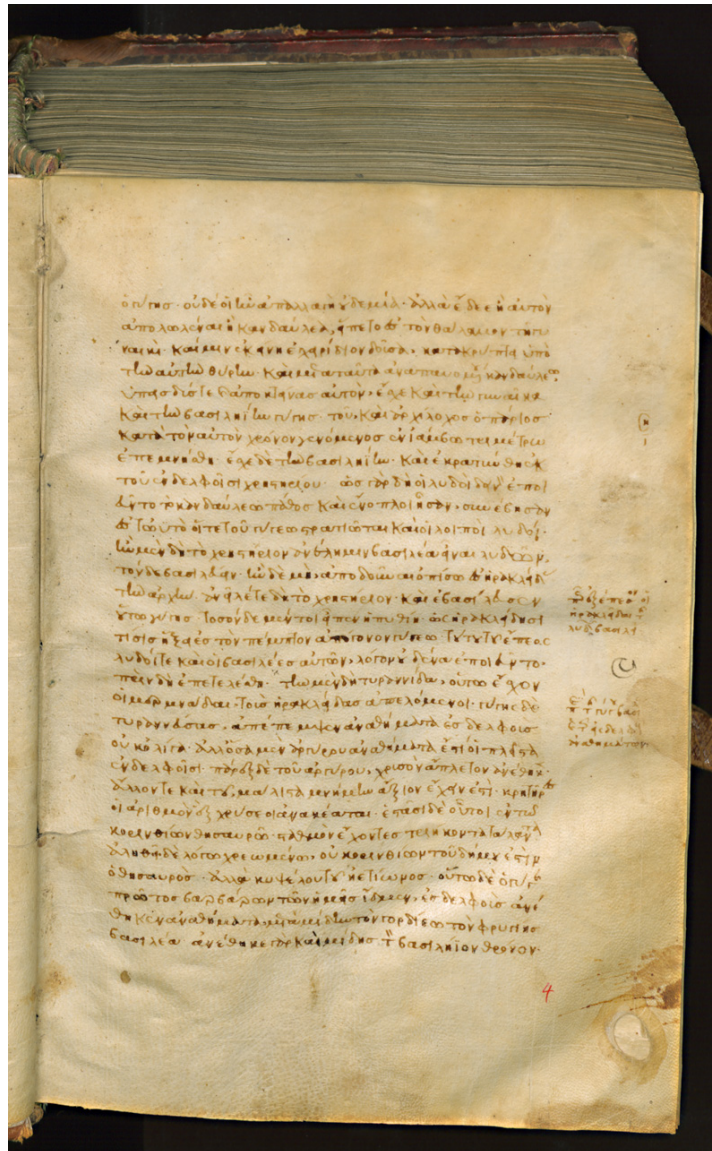 ὁ γύγης· οὐδέ οἱ ἦν ἀπαλλαγὴ οὐδεμία· ἀλλὰ ἔδεε ἢ αὐτὸν
ἀπολωλέναι ἢ κανδαύλεα, εἵπετο ἐς τὸν θάλαμον τῆ γυ
ναικί· καί μιν ἐκείνη ἐγχειρίδιον δοῦσα, κατακρύπτει ὑπὸ
τὴν αὐτὴν θύρην· καὶ μετὰ ταῦτα ἀναπαυομένου κανδαύλεω
ὑπεσδύς τε καὶ ἀποκτείνας αὐτὸν, ἔσχε καὶ τὴν γυναῖκα
καὶ τὴν βασιληίην γύγης· τοῦ καὶ ἀρχίλοχος ὁ πάριος
κατὰ τὸν αὐτὸν χρόνον γενόμενος ἐν ἰάμβω τριμέτρω
ἐπεμνήσθη· ἔσχε δὲ τὴν βασιληίην· καὶ ἐκρατύνθη ἐκ
τοῦ ἐν δελφοῖσι χρηστηρίου· ὡς γὰρ δὴ οἱ λυδοὶ δεινὸν ἐποι
εῦντο τὸ κανδαύλεω πάθος καὶ ἐν ὅπλοισι ἦσαν, συνέβησαν
ἐς τωυτὸ οἵ τε τοῦ γύγεω στρατιῶται καὶ οἱ λοιποὶ λυδοί·
ἢν μὲν δὴ τὸ χρηστήριον ἀνέλη μιν βασιλέα εἶναι λυδῶν,
τόνδε βασιλεύειν· ἢν δὲ μὴ, ἀποδοῦναι ὀπίσω ἐς ἡρακλείδας
τὴν ἀρχήν· ἀνεῖλέ τε δὴ τὸ χρηστήριον· καὶ ἐβασίλευσεν
οὕτω γύγης· τοσόνδε μέντοι εἶπεν ἡ πυθίη· ὡς ἡρακλείδησι
τίσις ἥξει ἐς τὸν πέμπτον ἀπόγονον γύγεω· τούτου τοῦ ἔπεος
λυδοί τε καὶ οἱ βασιλέες αὐτῶν, λόγον οὐδένα ἐποιεῦντο·
πρὶν δὴ ἐπετελέσθη· τὴν μὲν δὴ τυραννίδα, οὕτω ἔσχον
οἱ μερμνάδαι· τοὺς ἡρακλείδας ἀπελόμενοι· γύγης δὲ
τυραννεύσας, ἀπέπεμψεν ἀναθήματα ἐς δελφοὺς
οὐκ ὀλίγα· ἀλλ' ὅσα μὲν ἀργύρου ἀναθήματα ἔστι οἱ πλεῖστα
ἐν δελφοῖσι· πάρεξ δὲ τοῦ ἀργύρου, χρυσὸν ἄπλετον ἀνέθηκε·
ἄλλον τε καὶ τοῦ, μάλιστα μνήμην ἄξιον ἔχειν ἐστὶ· κρητῆρες
οἱ ἀριθμὸν ἓξ χρύσεοι ἀνακέαται· ἑστᾶσι δὲ οὗτοι ἐν τῶ
κορινθίων θησαυρῶ· σταθμὸν ἔχοντες τριήκοντα τάλαντα·
ἀληθέι δὲ λόγω χρεωμένω, οὐ κορινθίων τοῦ δήμου ἐστὶν
ὁ θησαυρὸς· ἀλλὰ κυψέλου τοῦ ἠετίωνος· οὗτος δὲ ὁ γύγης
πρῶτος βαρβάρων τῶν ἡμεῖς ἴδμεν, ἐς δελφοὺς ἀνέ
θηκεν ἀναθήματα, μετὰ μίδην τὸν γορδίεω τὸν φρυγίης
βασιλέα· ἀνέθηκε γὰρ καὶ μίδης τὸν βασιλήιον θρόνον·
4